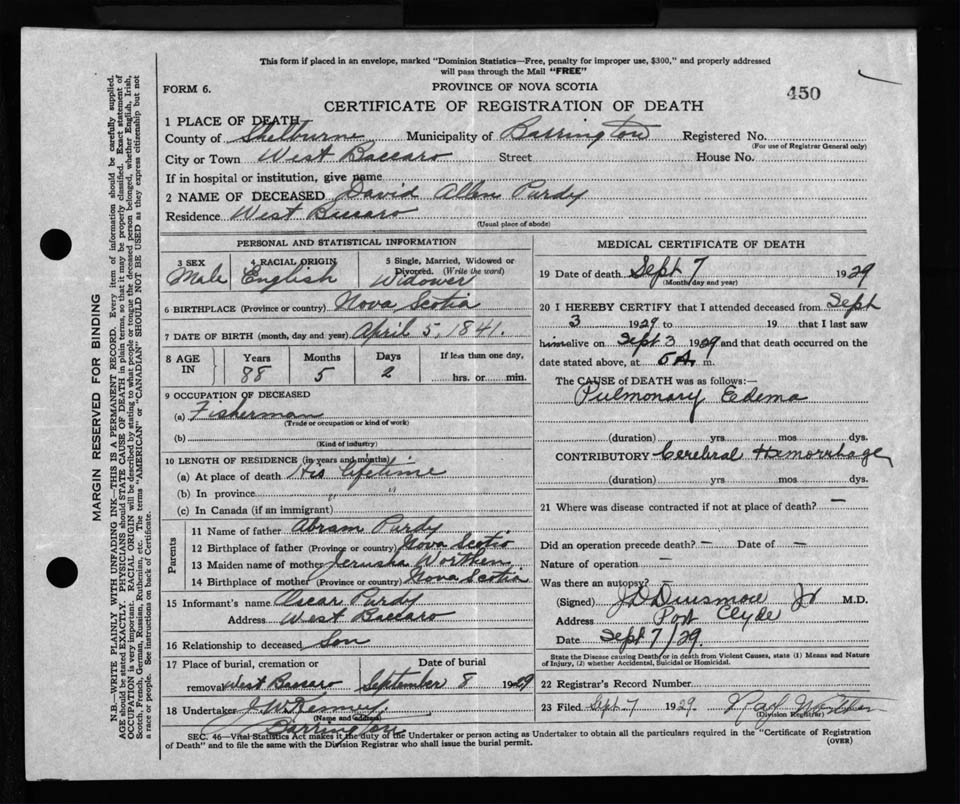 This form if placed in an envelope, marked "Dominion Statistics—Free, penalty for improper use, $300," and properly addressed
will pass through the Mail "FREE"
FORM 6.
PROVINCE OF NOVA SCOTIA
450
CERTIFICATE OF REGISTRATION OF DEATH
1 PLACE OF DEATH
County of Shelburne Municipality of Barrington Registered No.
(For use of Registrar General only)
City or Town West Baccaro Street House No.
If in hospital or institution, give name
2 NAME OF DECEASED David Allen Purdy
Residence West Baccaro
(Usual place of abode)
PERSONAL AND STATISTICAL INFORMATION
3 SEX 4 RACIAL ORIGIN 5 Single, Married, Widowed or
Divorced. (Write the word)
Male English Widower
6 BIRTHPLACE (Province or country) Nova Scotia
7 DATE OF BIRTH (month, day and year) April 5, 1841.
8 AGE IN Years Months Days If less than one day,
88 5 2 hrs. or min.
9 OCCUPATION OF DECEASED
(a) Fisherman
(Trade or occupation or kind of work)
(b)
(Kind of industry)
10 LENGTH OF RESIDENCE (in years and months)
(a) At place of death His lifetime
(b) In province " "
(c) In Canada (if an immigrant)
Parents
11 Name of father Abram Purdy
12 Birthplace of father (Province or country) Nova Scotia
13 Maiden name of mother Jerusha Worthen
14 Birthplace of mother (Province or country) Nova Scotia
15 Informant's name Oscar Purdy
Address West Baccaro
16 Relationship to deceased Son
17 Place of burial, cremation or Date of burial
removal West Baccaro September 8 1929
18 Undertaker J. W.
(Name and address)
Barrington
MEDICAL CERTIFICATE OF DEATH
19 Date of death Sept 7 1929
(Month, day and year)
20 I HEREBY CERTIFY that I attended deceased from Sept
3 1929 to 19 that I last saw
him alive on Sept 3 1929 and that death occurred on the
date stated above, at 5 A. m.
The CAUSE of DEATH was as follows:—
Pulmonary Edema
(duration) yrs. mos dys.
CONTRIBUTORY Cerebral Hemorrhage
(duration) yrs. mos dys.
21 Where was disease contracted if not at place of death? —
Did an operation precede death? — Date of —
Nature of operation —
Was there an autopsy? —
(Signed) J D Densmore Jr M.D.
Address Port Clyde
Date Sept 7/29.
State the Disease causing Death, or in death from Violent Causes, state (1) Means and Nature
of Injury, (2) whether Accidental, Suicidal or Homicidal.
22 Registrar's Record Number
23 Filed Sept 7 1929. Ray
(Division Registrar)
SEC. 46—Vital Statistics Act makes it the duty of the Undertaker or person acting as Undertaker to obtain all the particulars required in the "Certificate of Registration
of Death" and to file the same with the Division Registrar who shall issue the burial permit.
(OVER)
MARGIN RESERVED FOR BINDING
N.B.—WRITE PLAINLY WITH UNFADING INK—THIS IS A PERMANENT RECORD. Every item of information should be carefully supplied.
AGE should be stated EXACTLY. PHYSICIANS should STATE CAUSE OF DEATH in plain terms, so that it may be properly classified. Exact statement of
OCCUPATION is very important. RACIAL ORIGIN will be described by stating to what people or tongue the deceased person belonged, whether English, Irish,
Scotch, French, German, Russian, Ruthenian, etc. The terms "AMERICAN" or "CANADIAN" SHOULD NOT BE USED as they express citizenship but not
a race or people. See instructions on back of Certificate.